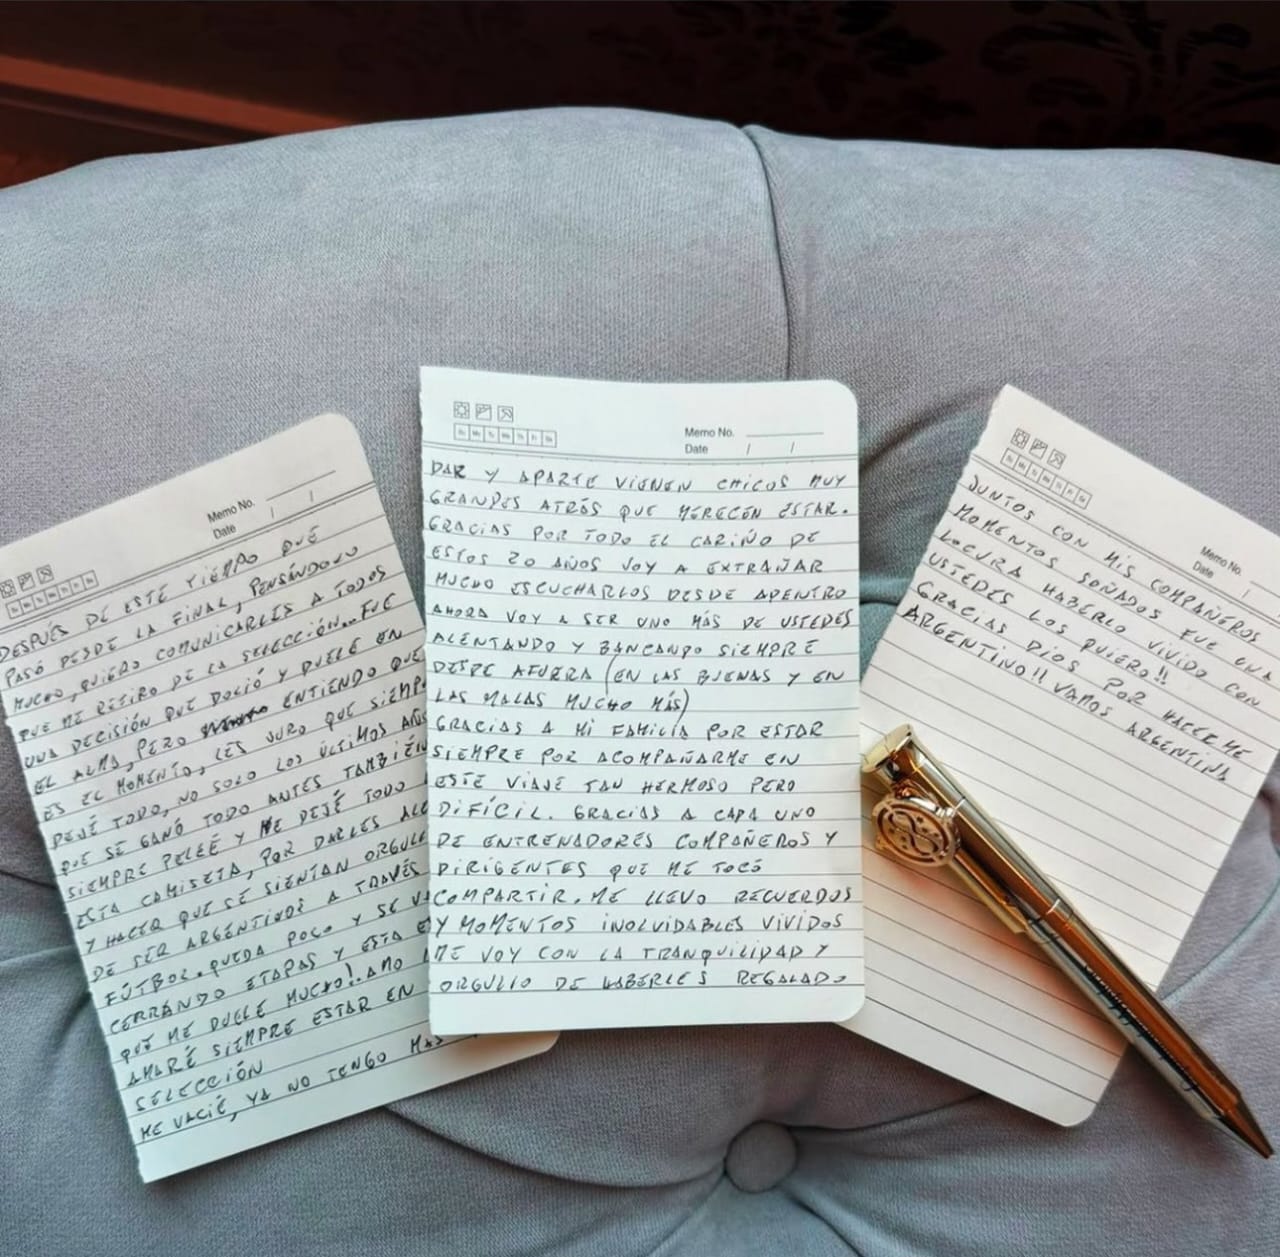 Memo No.
Date / /
DESPUÉS DE ESTE TIEMPO QUE
PASÓ DESDE LA FINAL, PENSÁNDOLO
MUCHO, QUIERO COMUNICARLES A TODOS
QUE ME RETIRO DE LA SELECCIÓN... FUE
UNA DECISIÓN QUE DOLIÓ Y DUELE EN
EL ALMA, PERO ENTIENDO QUE
ES EL MOMENTO, LES JURO QUE SIEMP
DEJÉ TODO, NO SOLO LOS ÚLTIMOS AÑOS
QUE SE GANÓ TODO ANTES TAMBIÉN
SIEMPRE PELEÉ Y ME DEJÉ TODO
ESTA CAMISETA, POR DARLES ALE
Y HACER QUE SE SIENTAN ORGULL
DE SER ARGENTINOS A TRAVÉS
FÚTBOL. QUEDA POCO Y SE VA
CERRANDO ETAPAS Y ESTA E
QUE ME DUELE MUCHO!! AMO
AMARÉ SIEMPRE ESTAR EN
SELECCIÓN
ME VACIÉ, YA NO TENGO MAS
Memo No.
Su Mo Tu We Th Fr Sa
Date / /
DAR Y APARTE VIENEN CHICOS MUY
GRANDES ATRÁS QUE MERECEN ESTAR.
GRACIAS POR TODO EL CARIÑO DE
ESTOS 20 AÑOS VOY A EXTRAÑAR
MUCHO ESCUCHARLOS DESDE ADENTRO
AHORA VOY A SER UNO MÁS DE USTEDES
ALENTANDO Y BANCANDO SIEMPRE
DESDE AFUERA (EN LAS BUENAS Y EN
LAS MALAS MUCHO MÁS)
GRACIAS A MI FAMILIA POR ESTAR
SIEMPRE POR ACOMPAÑARME EN
ESTE VIAJE TAN HERMOSO PERO
DIFÍCIL. GRACIAS A CADA UNO
DE ENTRENADORES COMPAÑEROS Y
DIRIGENTES QUE ME TOCÓ
COMPARTIR. ME LLEVO RECUERDOS
Y MOMENTOS INOLVIDABLES VIVIDOS
ME VOY CON LA TRANQUILIDAD Y
ORGULLO DE HABERLES REGALADO
Memo No.
Date /
JUNTOS CON MIS COMPAÑEROS
MOMENTOS SOÑADOS FUE UNA
LOCURA HABERLO VIVIDO CON
USTEDES LOS QUIERO!!
GRACIAS DIOS POR HACERME
ARGENTINO!! VAMOS ARGENTINA